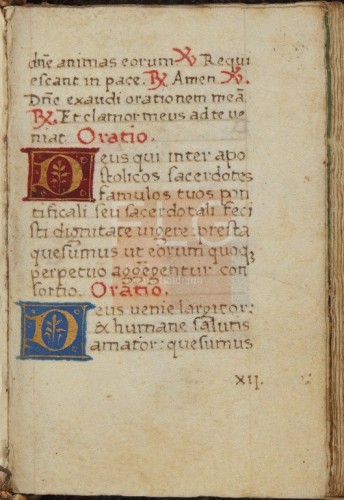 dñe animas eorum ℣ Requi
escant in pace. ℟ Amen. ℣.
Dñe exaudi orationem meã
℟. Et clamor meus ad te ve
niat. Oratio.
Deus qui inter apo
stolicos sacerdotes
famulos tuos pon
tificali seu sacerdotali feci
sti dignitate vigere: presta
quesumus ut eorum quoqꝫ
perpetuo aggegentur con
sortio. Oratio.
Deus venie largitor:
& humane salutis
amator: quesumus
XII.